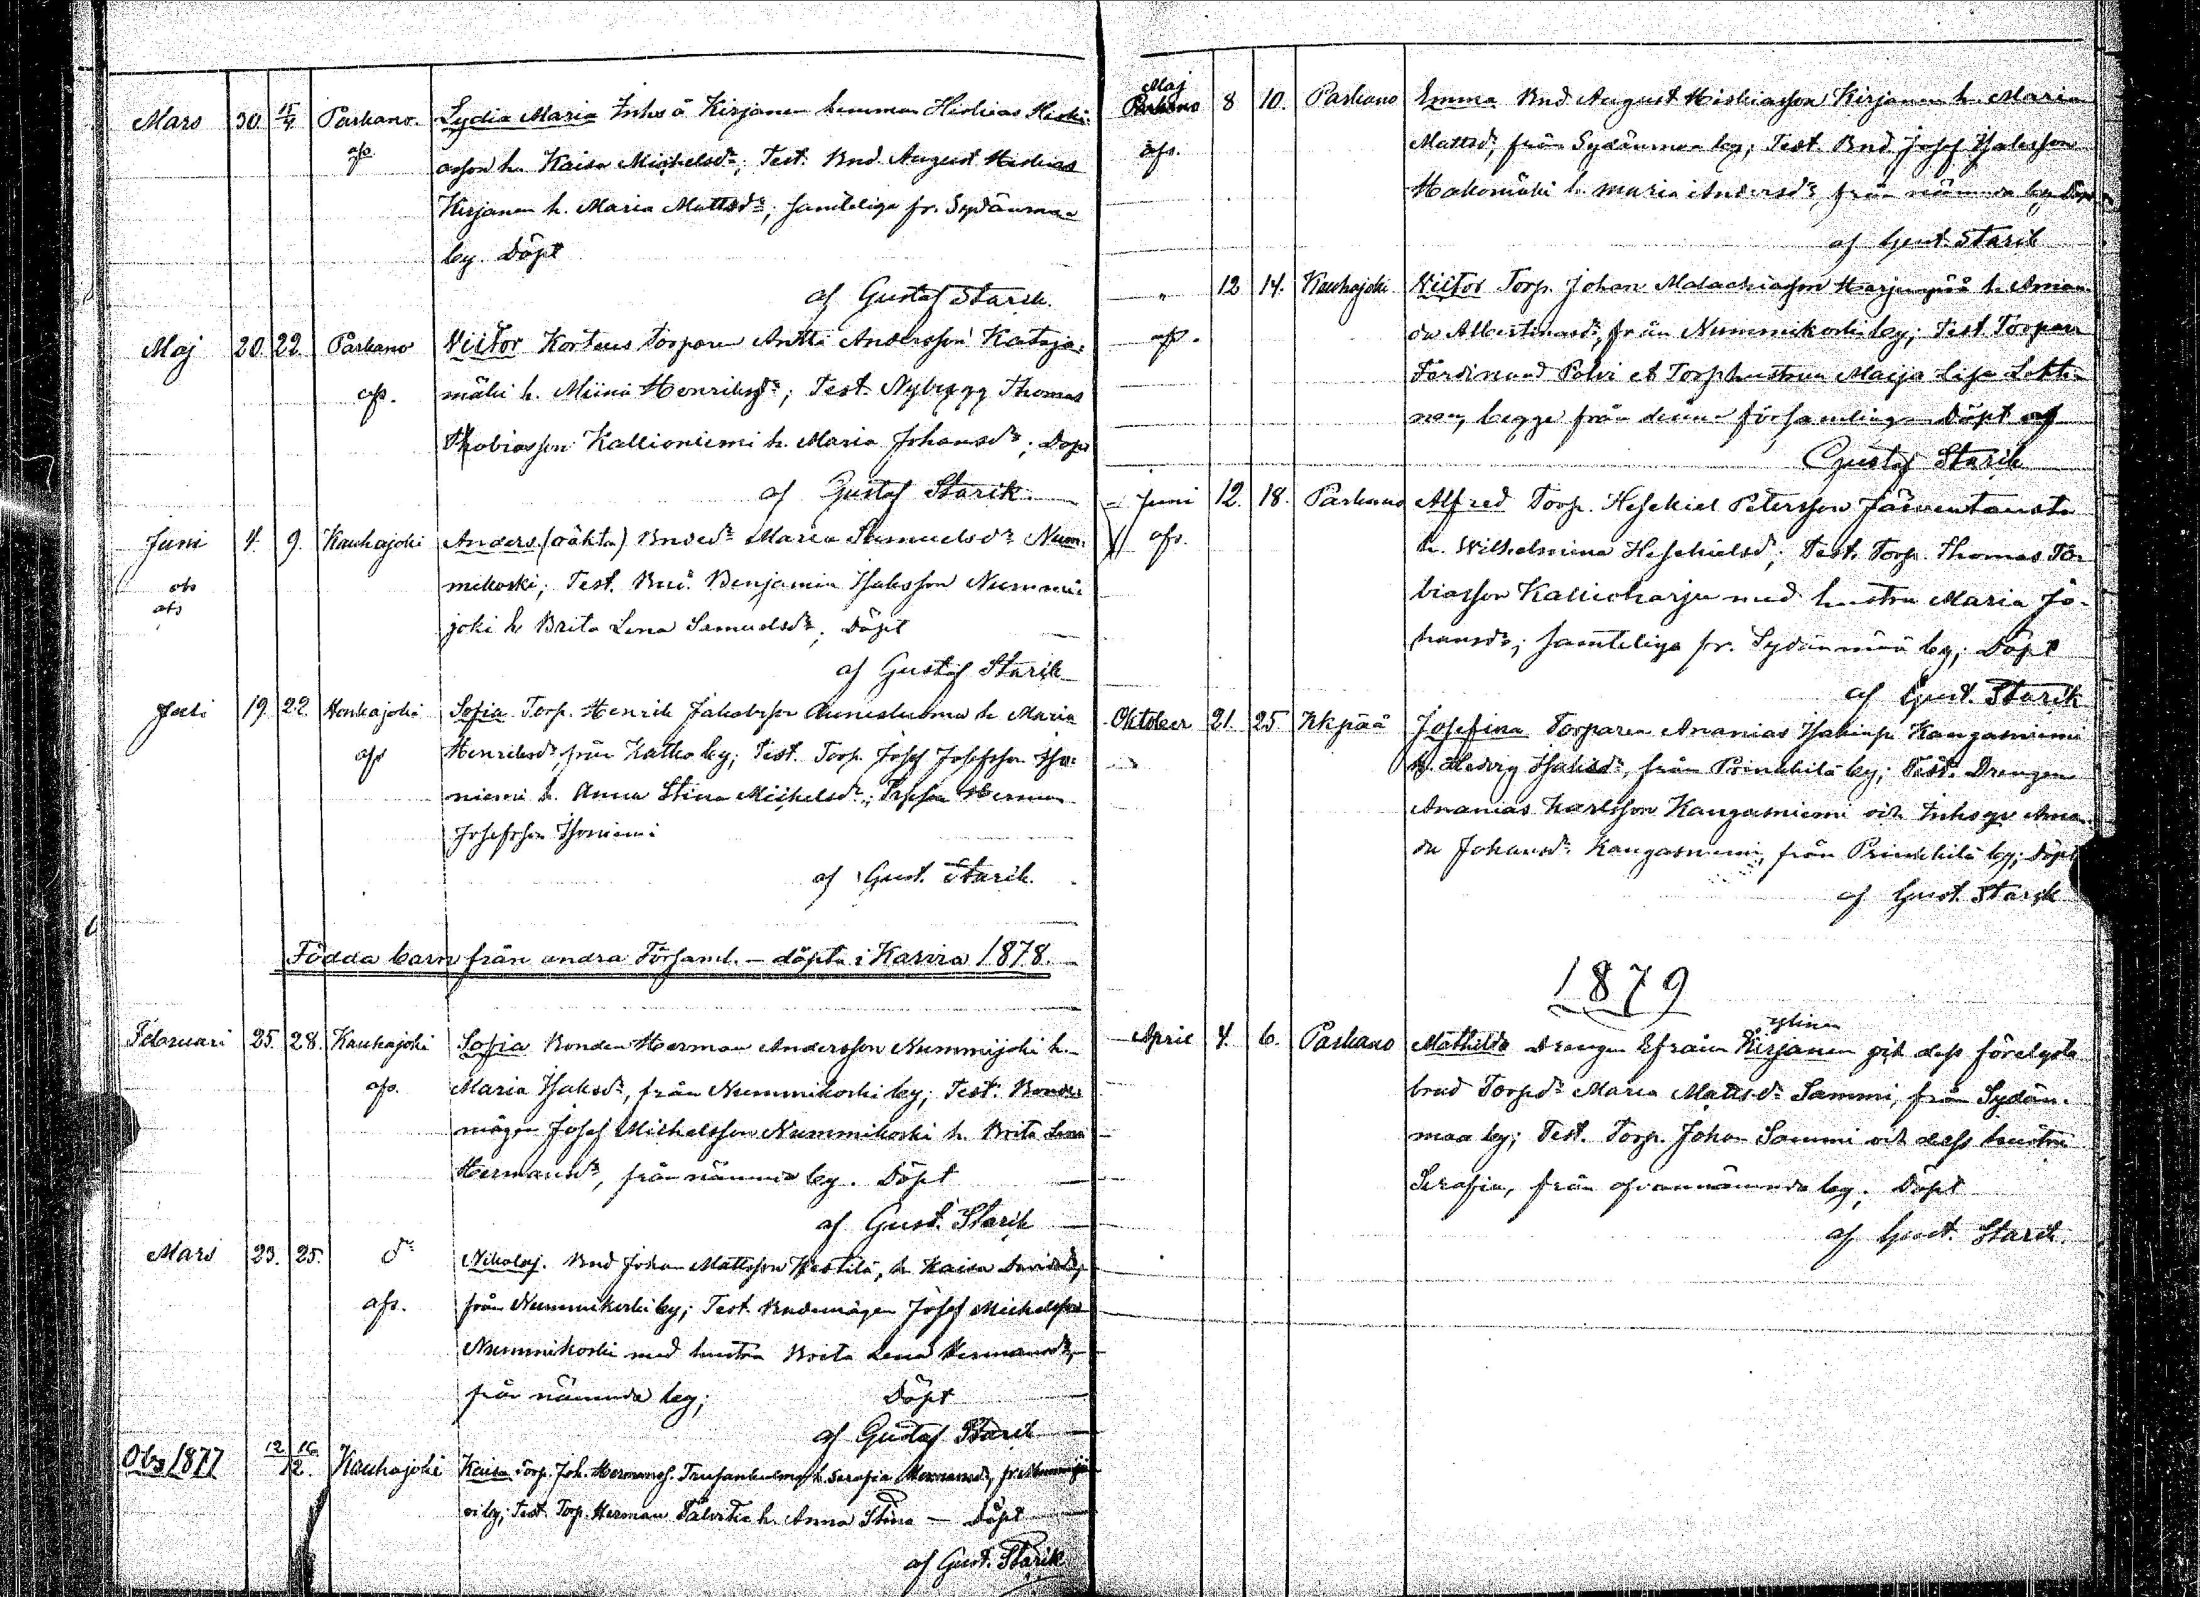 Mars 30. 15/4 Parkano. Lydia Maria Inhs å Kirjanen hemman Hiskias Hiski-
afs asson h. Kaisa Michelsdr; Test. Bnd. August Hiskias
Kirjanen h. Maria Mattsdr, samteliga fr. Sydänmaa
by. Döpt
af Gustaf Starck.
Maj 20. 22. Parkano Victor Korteus torparen Antti Andersson Kataja-
afs. mäki h. Miina Henriksdr; Test. Nybygg Thomas
Thobiasson Kallioniemi h. Maria Johansdr; Döpt
af Gustaf Starck.
Juni 4. 9. Kauhajoki Anders. (oäkta) Bndedr Maria Samuelsdr Num-
obs mikoski; Test. Bnd. Benjamin Isaksson Nummi-
afs joki h. Brita Lena Samuelsdr; Döpt
af Gustaf Starck
Juli 19 22. Honkajoki Sofia Torp. Henrik Jakobsson h. Maria
afs Henriksdr från Katko by; Test. Torp. Josef Josefsson
niemi h. Anna Stina Michelsdr; Herman
Josefsson
af Gust. Starck.
Födda barn från andra Församl. – döpta i Karvia 1878.
Februari 25. 28. Kauhajoki Sofia Bonden Herman Andersson Nummijoki h.
afs. Maria Isaksdr, från Nummikoski by; Test. Bonde-
mågen Josef Michelsson Nummikoski h. Brita Lena
Hermansdr, från nämnda by. Döpt
af Gust. Starck
Mars 23. 25. do Nikolaj. Bnd Johan Mattsson Kestilä, h. Kaisa Davidsdr,
afs. från Nummikoski by; Test. Bndemågen Josef Michelsson
Nummikoski med hustru Brita Lena Hermansdr,
från nämnda by; Döpt
af Gustaf Starck
Obs 1877 12 16/12. Kauhajoki Kaisa Torp. Joh. Hermanss. h. Serafia Hermansdr,
by; Test. Torp. Herman h. Anna Stina – Döpt
af Gust. Starck
Maj 8 10. Parkano Emma Bnd August Hiskiasson Kirjanen h. Maria
Parkano
afs. Mattsdr, från Sydänmaa by; Test. Bnd Josef Isaksson
Hakomäki h. Maria Andersdr, från nämnda by Döpt
af Gust. Starck
" 12 14. Kauhajoki Victor Torp. Johan Malachiasson Harjunpää h. Aman-
afs. da Albertinasdr, från Nummikoski by; Test. Torparen
Ferdinand Polvi et Torphustrun Maija Lisa Lehti-
nen, begge från denna församlingen Döpt af
Gustaf Starck
Juni 12. 18. Parkano Alfred Torp. Hesekiel Petersson Järventausta
afs. h. Wilhelmina Hesekielsdr; Test. Torp. Thomas To-
biasson Kallioharju med hustru Maria Jo-
hansdr; samteliga fr. Sydänmaa by; Döpt
af Gust. Starck
Oktober 21. 25. Kkpää Josefina Torparen Ananias Kangasniemi
h. Hedvig Isaksdr, från Prinkkilä by; Test. Drengen
Ananias Karlsson Kangasniemi och Inhsqv Aman-
da Johansdr Kangasniemi, från Prinkkilä by; Döpt
af Gust. Starck
1879
Ylinen
April 4. 6. Parkano Mathilda Drengen Efraim Kirjanen och dess förelupta
brud Torpdr Maria Mattsdr Sammi, från Sydän-
maa by; Test. Torp. Johan Sammi och dess hustru
Serafia, från ofvannämnda by. Döpt
af Gust. Starck.